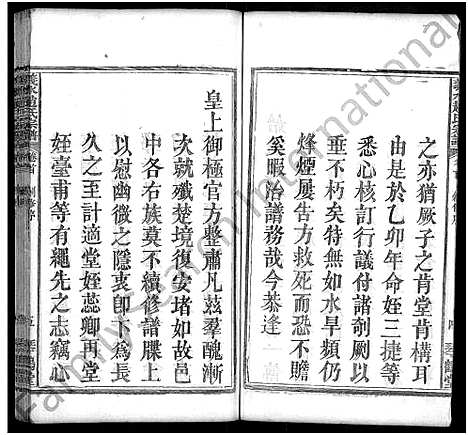 之亦猶厥子之肯堂肯構耳
由是於乙卯年命姪三捷等
悉心核訂行議付諸剞劂以
垂不朽矣特無如水旱頻仍
烽煙屢告方救死而恐不贍
奚暇治譜務哉今恭逢
皇上御極官方整肅凡茲羣醜漸
次就殲楚境復安堵如故邑
中各右族莫不續修譜牒上
以慰幽微之隱衷卽下爲長
久之至計適堂姪蕊卿再堂
姪臺甫等有繩先之志竊心
義水趙氏宗譜
卷首
琴鶴堂
FamilySearch International